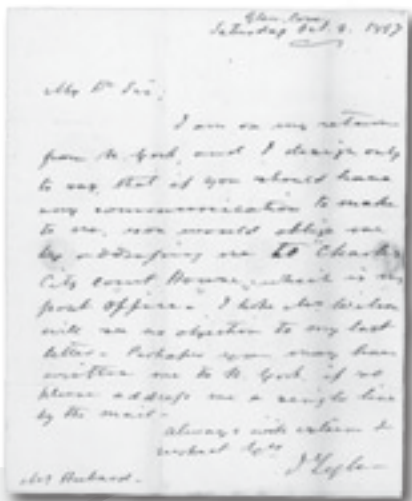 Saturday Oct. 1857
My Dr Sir,
I am on my return
from N. York, and I design only
to say, that if you should have
any communication to make
to me, you would oblige me
by addressing me to Charles
City Court House, which is my
post office. I hope Mr
will see no objection to my last
letter. Perhaps you may have
written me to N. York, if so
please address me a single line
by the mail.
always with esteem &
respect Yrs
J Tyler